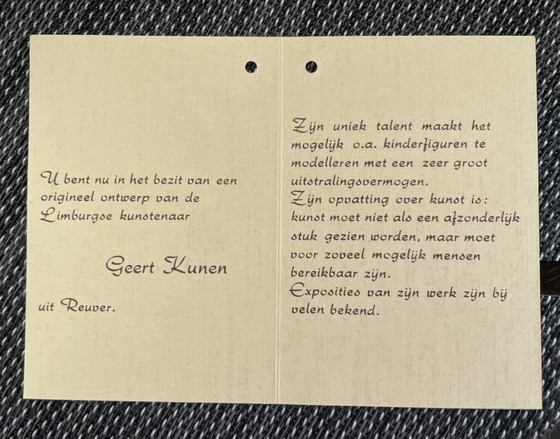 U bent nu in het bezit van een
origineel ontwerp van de
Limburgse kunstenaar
Geert Kunen
uit Reuver.
Zijn uniek talent maakt het
mogelijk o.a. kinderfiguren te
modelleren met een zeer groot
uitstralingsvermogen.
Zijn opvatting over kunst is:
kunst moet niet als een afzonderlijk
stuk gezien worden, maar moet
voor zoveel mogelijk mensen
bereikbaar zijn.
Exposities van zijn werk zijn bij
velen bekend.